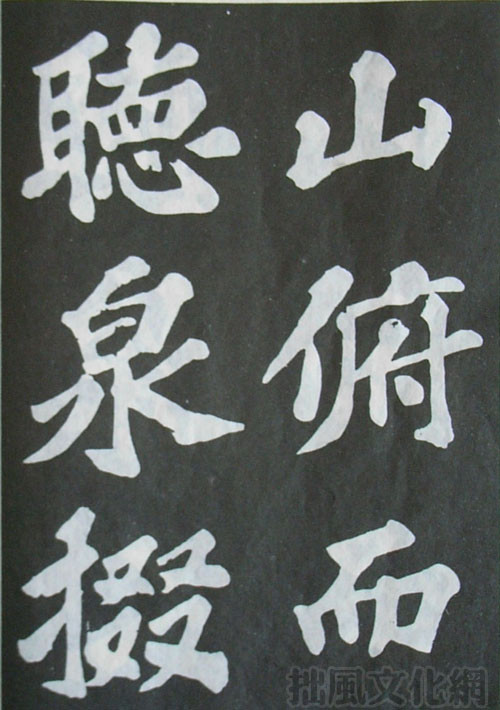 山俯而
聴泉掇
拙風文化網